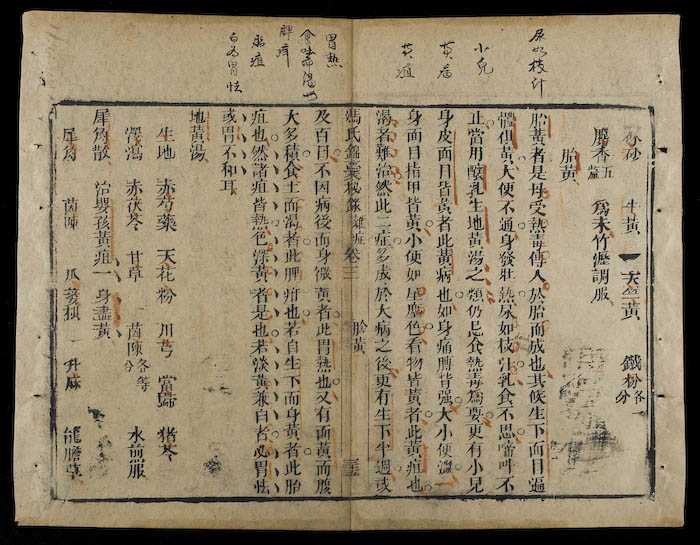 尿如枝汁
小兒
黄病
黄疸
砂 牛黃 天竺黃 鐵粉各分
麝香五釐 爲末竹瀝調服
胎黃
胎黃者是母受熱毒傳人於胎而成也其候生下面目遍
體俱黃大便不通身發壯熱尿如枝汁乳食不思啼呌不
止當用酸乳生地黃湯之類仍忌食熱毒爲要更有小兒
身皮面目皆黃者此黃病也如身痛膊背强大小便澁一
身面目指甲皆黃小便如屋塵色看物皆黃者此黃疸也
渴者難治然此二症多成於大病之後更有生下半週或
馮氏錦囊秘錄 雜症 卷三 胎黃
胃熱
脾疳
胎疸
白为胃怯
及百日不因病後而身微黃者此胃熱也又有面黃而腹
大多積食土而渴者此脾疳也若自生下而身黃者此胎
疸也然諸疸皆熱色深黃者是也若淡黃兼白者必胃怯
或胃不和耳
地黃湯
生地 赤芍藥 天花粉 川芎 當歸 猪苓
澤瀉 赤茯苓 甘草 茵陳各等分 水煎服
犀角散 治嬰孩黃疸一身盡黃
犀角 茵陳 瓜蔞根 升麻 龍膽草